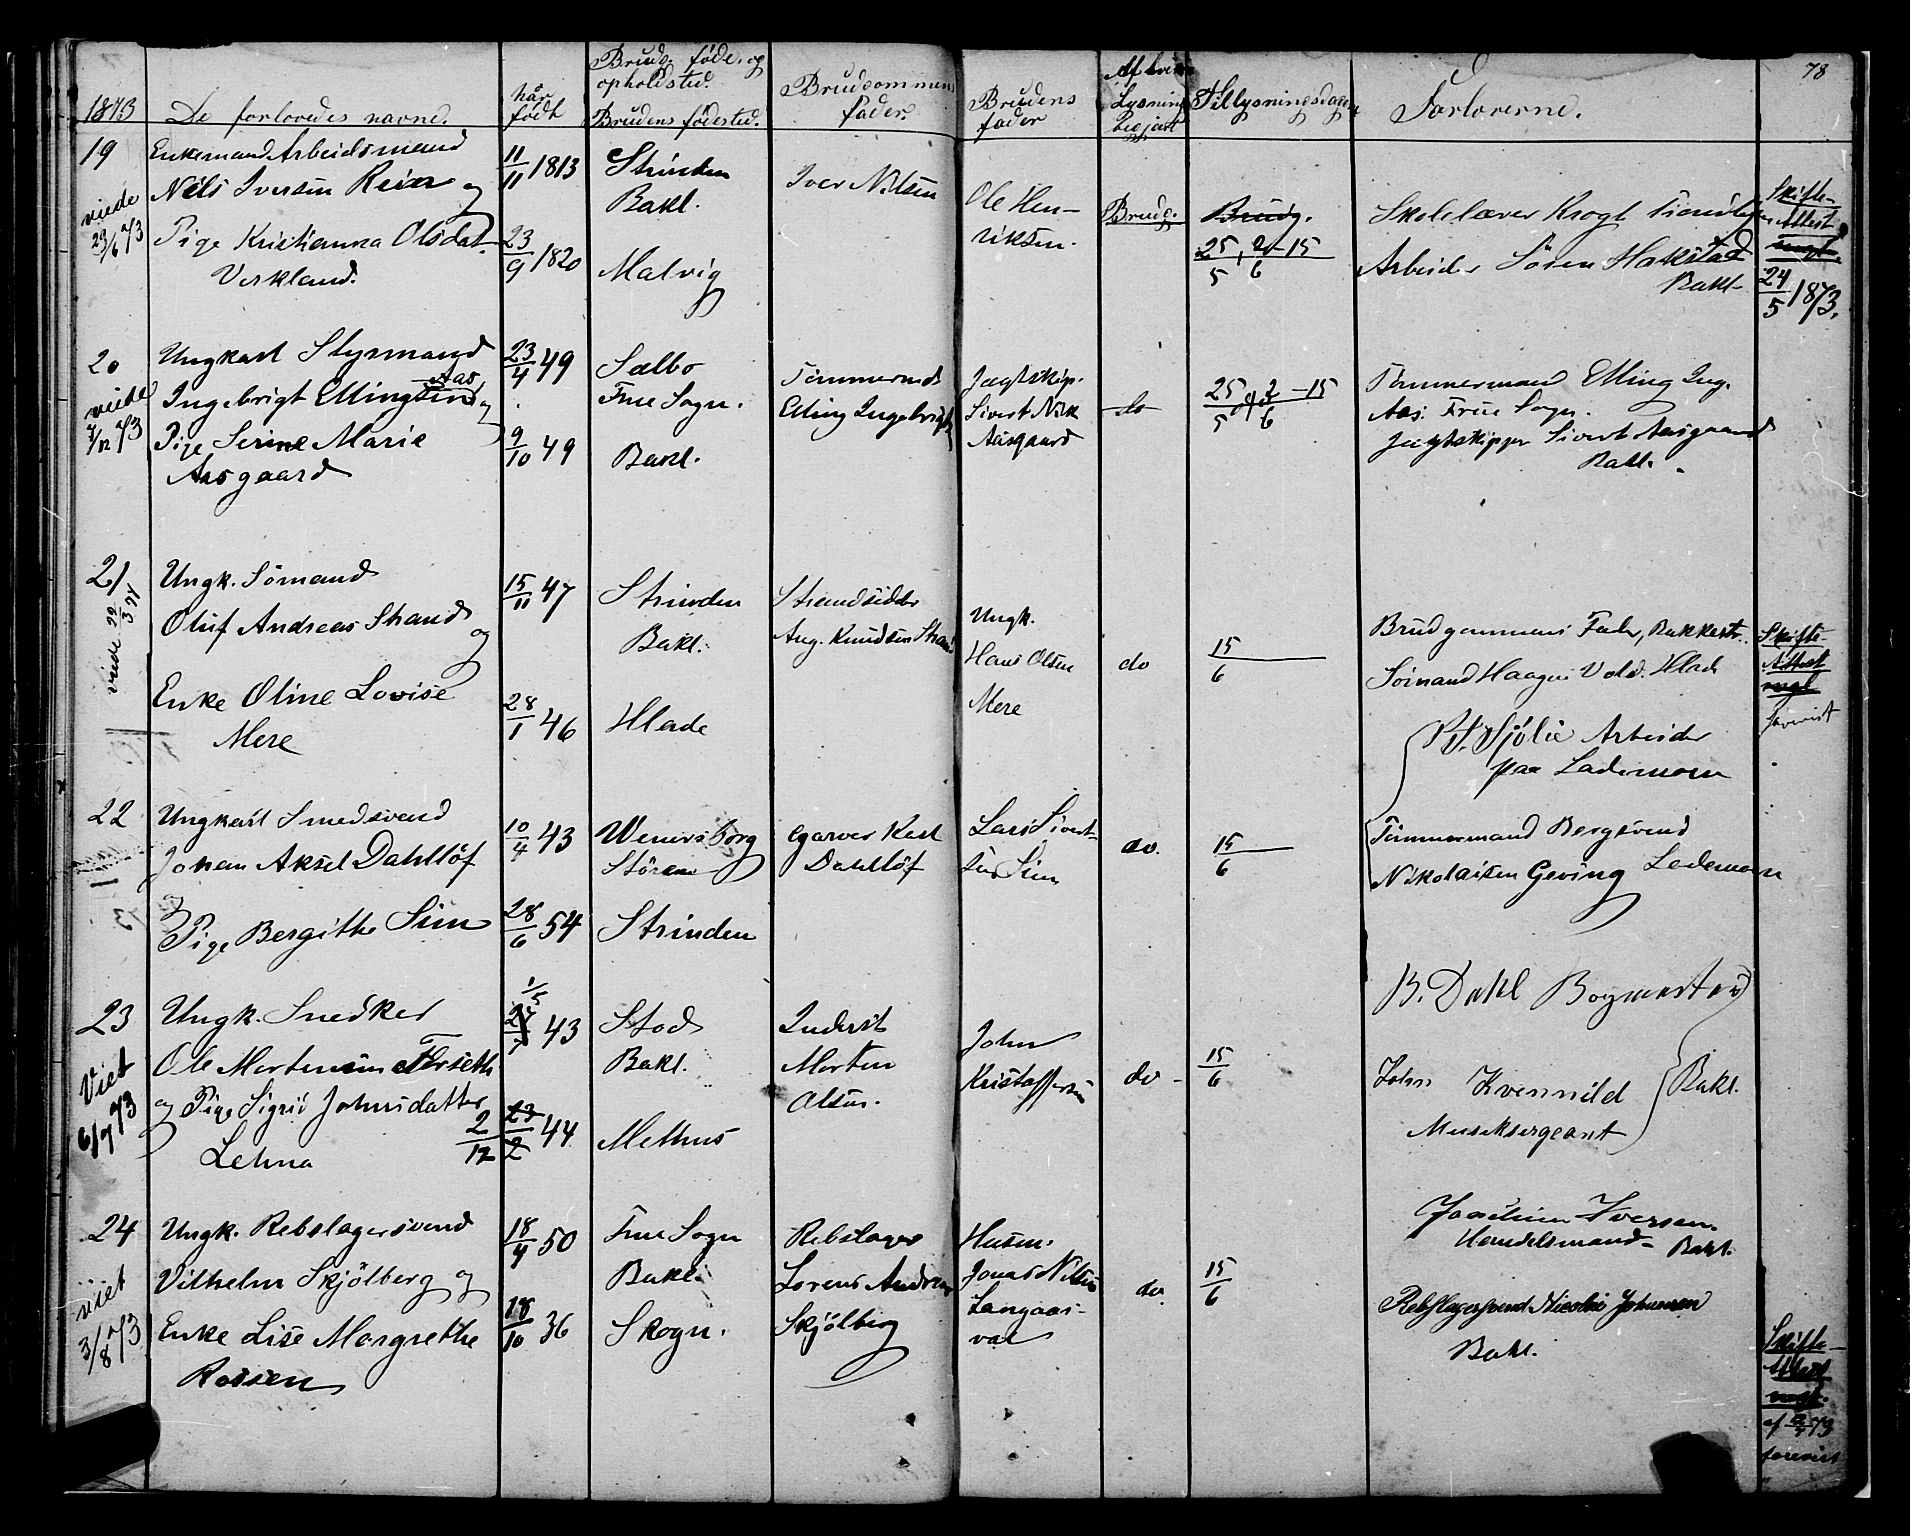 78
1873
De forlovedes navne.
når født
Brudg. føde- og opholdsted.
Brudens fødested.
Brudgommens fader.
Brudens fader
Af hvem Lysning begjært
Tillysningsdagen
Forloverne.
19
viede 29/6 73
Enkemand Arbeidsmand
Nils Iversen Reier og
Pige Kristianna Olsdat.
Verkland.
11/11 1813
23/9 1820
Strinden
Bakl.
Malvig
Iver Nilsen
Ole Hen-
riksen.
Brudg.
Brudg.
25/5, 2/6 - 15
Skolelærer Krogh
Arbeider Sören Hakstad
Bakl.
Skifte-
Attest
24/5 1873.
20
viede 7/12 73
Ungkarl Styrmand
Aas
Ingebrigt Ellingsen og
Pige Serine Marie
Aasgaard
23/4 49
9/10 49
Sælbo
Frue Sogn.
Bakl.
Tömmermd
Elling Ingebrigts
Jægtskip.
Sivert Nilk
Aasgaard
do
25/5 og 2/6 - 15
Tömmermand Elling Ing.
Aas: Frue Sogn.
Jægtskipper Sivert Aasgaard
Bakl.
21
viede 22/3 74
Ungk. Sömand
Oluf Andreas Strand
og
Enke Oline Lovise
Mere
15/11 47
28/1 46
Strinden
Bakl.
Hlade
Strandsidder
Aug. Knudsen Strand
Ungk.
Hans Olsen
Mere
do
15/6
Brudgommens Fader, Bakkestr.
Sömand Haagen Vold. Hlade
Skifte-
Attest
forevist
22
Ungkarl Smedsvend
Johan Aksel Dahllöf
og
Pige Bergithe Siem
10/4 43
28/6 54
Wenersborg
Stören
Strinden
Garver Karl
Dahllöf
Lars Sivert-
sen Siem
do.
15/6
Sjölie Arbeider
paa Lademoen
Tömmermand Bergsvend
Nikolaisen Geving Lademoen
23
Viet 6/7 73
Ungk. Snedker
Ole Mortensen Forseth
og Pige Sigrid Johnsdatter
Lehna
1/5
43
2/12 23/2 44
Stod
Bakl.
Melhus
Inderst
Morten
Olsen.
John
Kristoffersen
do -
15/6
B. Dahl Bogmester
John Kvennild
Musiksergeant
Bakl.
24
viet 3/8 73
Ungk. Rebslagersvend
Vilhelm Skjölberg og
Enke Lise Margrethe
Rossen
18/4 50
18/10 36
Frue Sogn
Bakl.
Skogn.
Rebslager
Lorens Andreas
Skjölberg
Husm.
Jonas Nilsen
Langaas-
val
do.
15/6
Iversen.
Handelsmand - Bakl.
Rebslagersvend Nicolai Johansen
Bakl.
Skifte-
Attest
forevist